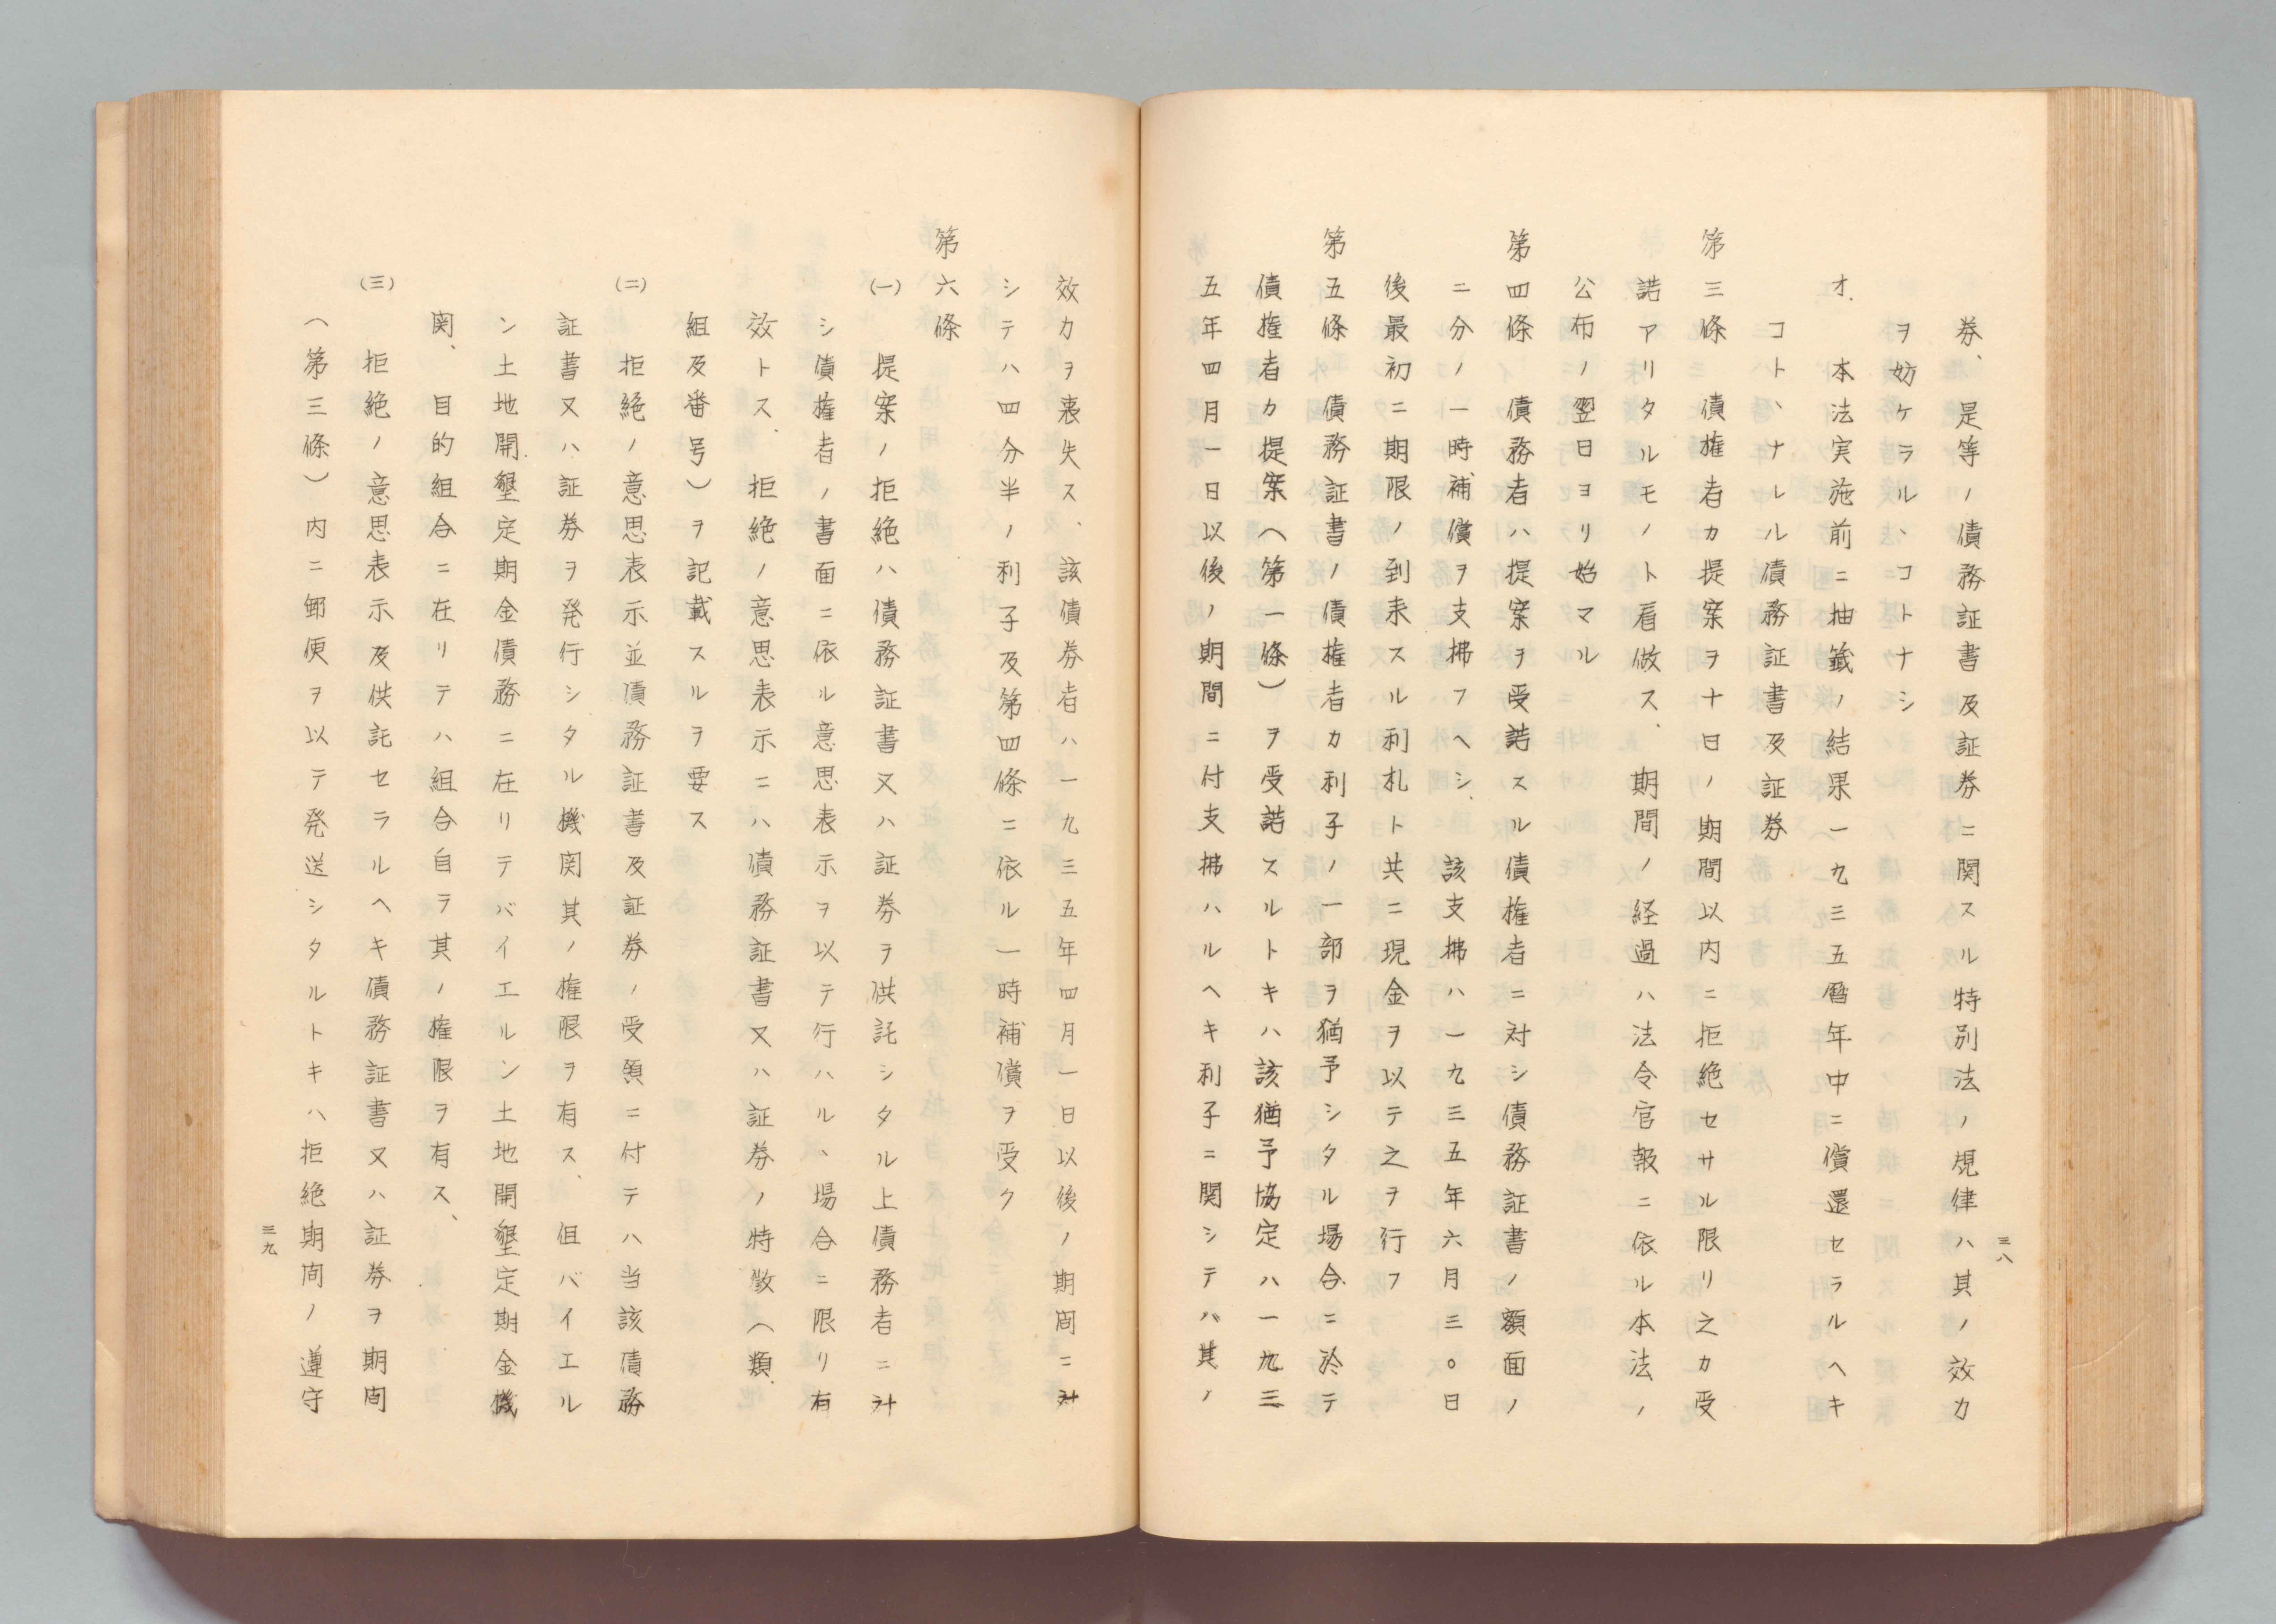 券、是等ノ債務証書及証券ニ関スル特別法ノ規律ハ其ノ效力
ヲ妨ケラル、コトナシ
オ、本法実施前ニ抽籤ノ結果一九三五暦年中ニ償還セラルヘキ
コト、ナレル債務証書及証券
第三條 債権者カ提案ヲ十日ノ期間以内ニ拒絶セサル限リ之カ受
諾アリタルモノト看做ス、期間ノ経過ハ法令官報ニ依ル本法ノ
公布ノ翌日ヨリ始マル
第四條 債務者ハ提案ヲ受諾スル債権者ニ対シ債務証書ノ額面ノ
二分ノ一時補償ヲ支拂フヘシ、該支拂ハ一九三五年六月三〇日
後最初ニ期限ノ到来スル利札ト共ニ現金ヲ以テ之ヲ行フ
第五條 債務証書ノ債権者カ利子ノ一部ヲ猶予シタル場合ニ於テ
債権者カ提案(第一條)ヲ受諾スルトキハ該猶予協定ハ一九三
五年四月一日以後ノ期間ニ付支拂ハルヘキ利子ニ関シテハ其ノ
三八
效力ヲ喪失ス、該債券者ハ一九三五年四月一日以後ノ期間ニ対
シテハ四分半ノ利子及第四條ニ依ル一時補償ヲ受ク
第六條
(一) 提案ノ拒絶ハ債務証書又ハ証券ヲ供託シタル上債務者ニ対
シ債権者ノ書面ニ依ル意思表示ヲ以テ行ハル、場合ニ限リ有
效トス、拒絶ノ意思表示ニハ債務証書又ハ証券ノ特徴(類、
組及番号)ヲ記載スルヲ要ス
(二) 拒絶ノ意思表示並債務証書及証券ノ受領ニ付テハ当該債務
証書又ハ証券ヲ発行シタル機関其ノ権限ヲ有ス、但バイエル
ン土地開墾定期金債務ニ在リテバイエルン土地開墾定期金機
関、目的組合ニ在リテハ組合自ラ其ノ権限ヲ有ス、
(三) 拒絶ノ意思表示及供託セラルヘキ債務証書又ハ証券ヲ期間
(第三條)内ニ郵便ヲ以テ発送シタルトキハ拒絶期間ノ遵守
三九